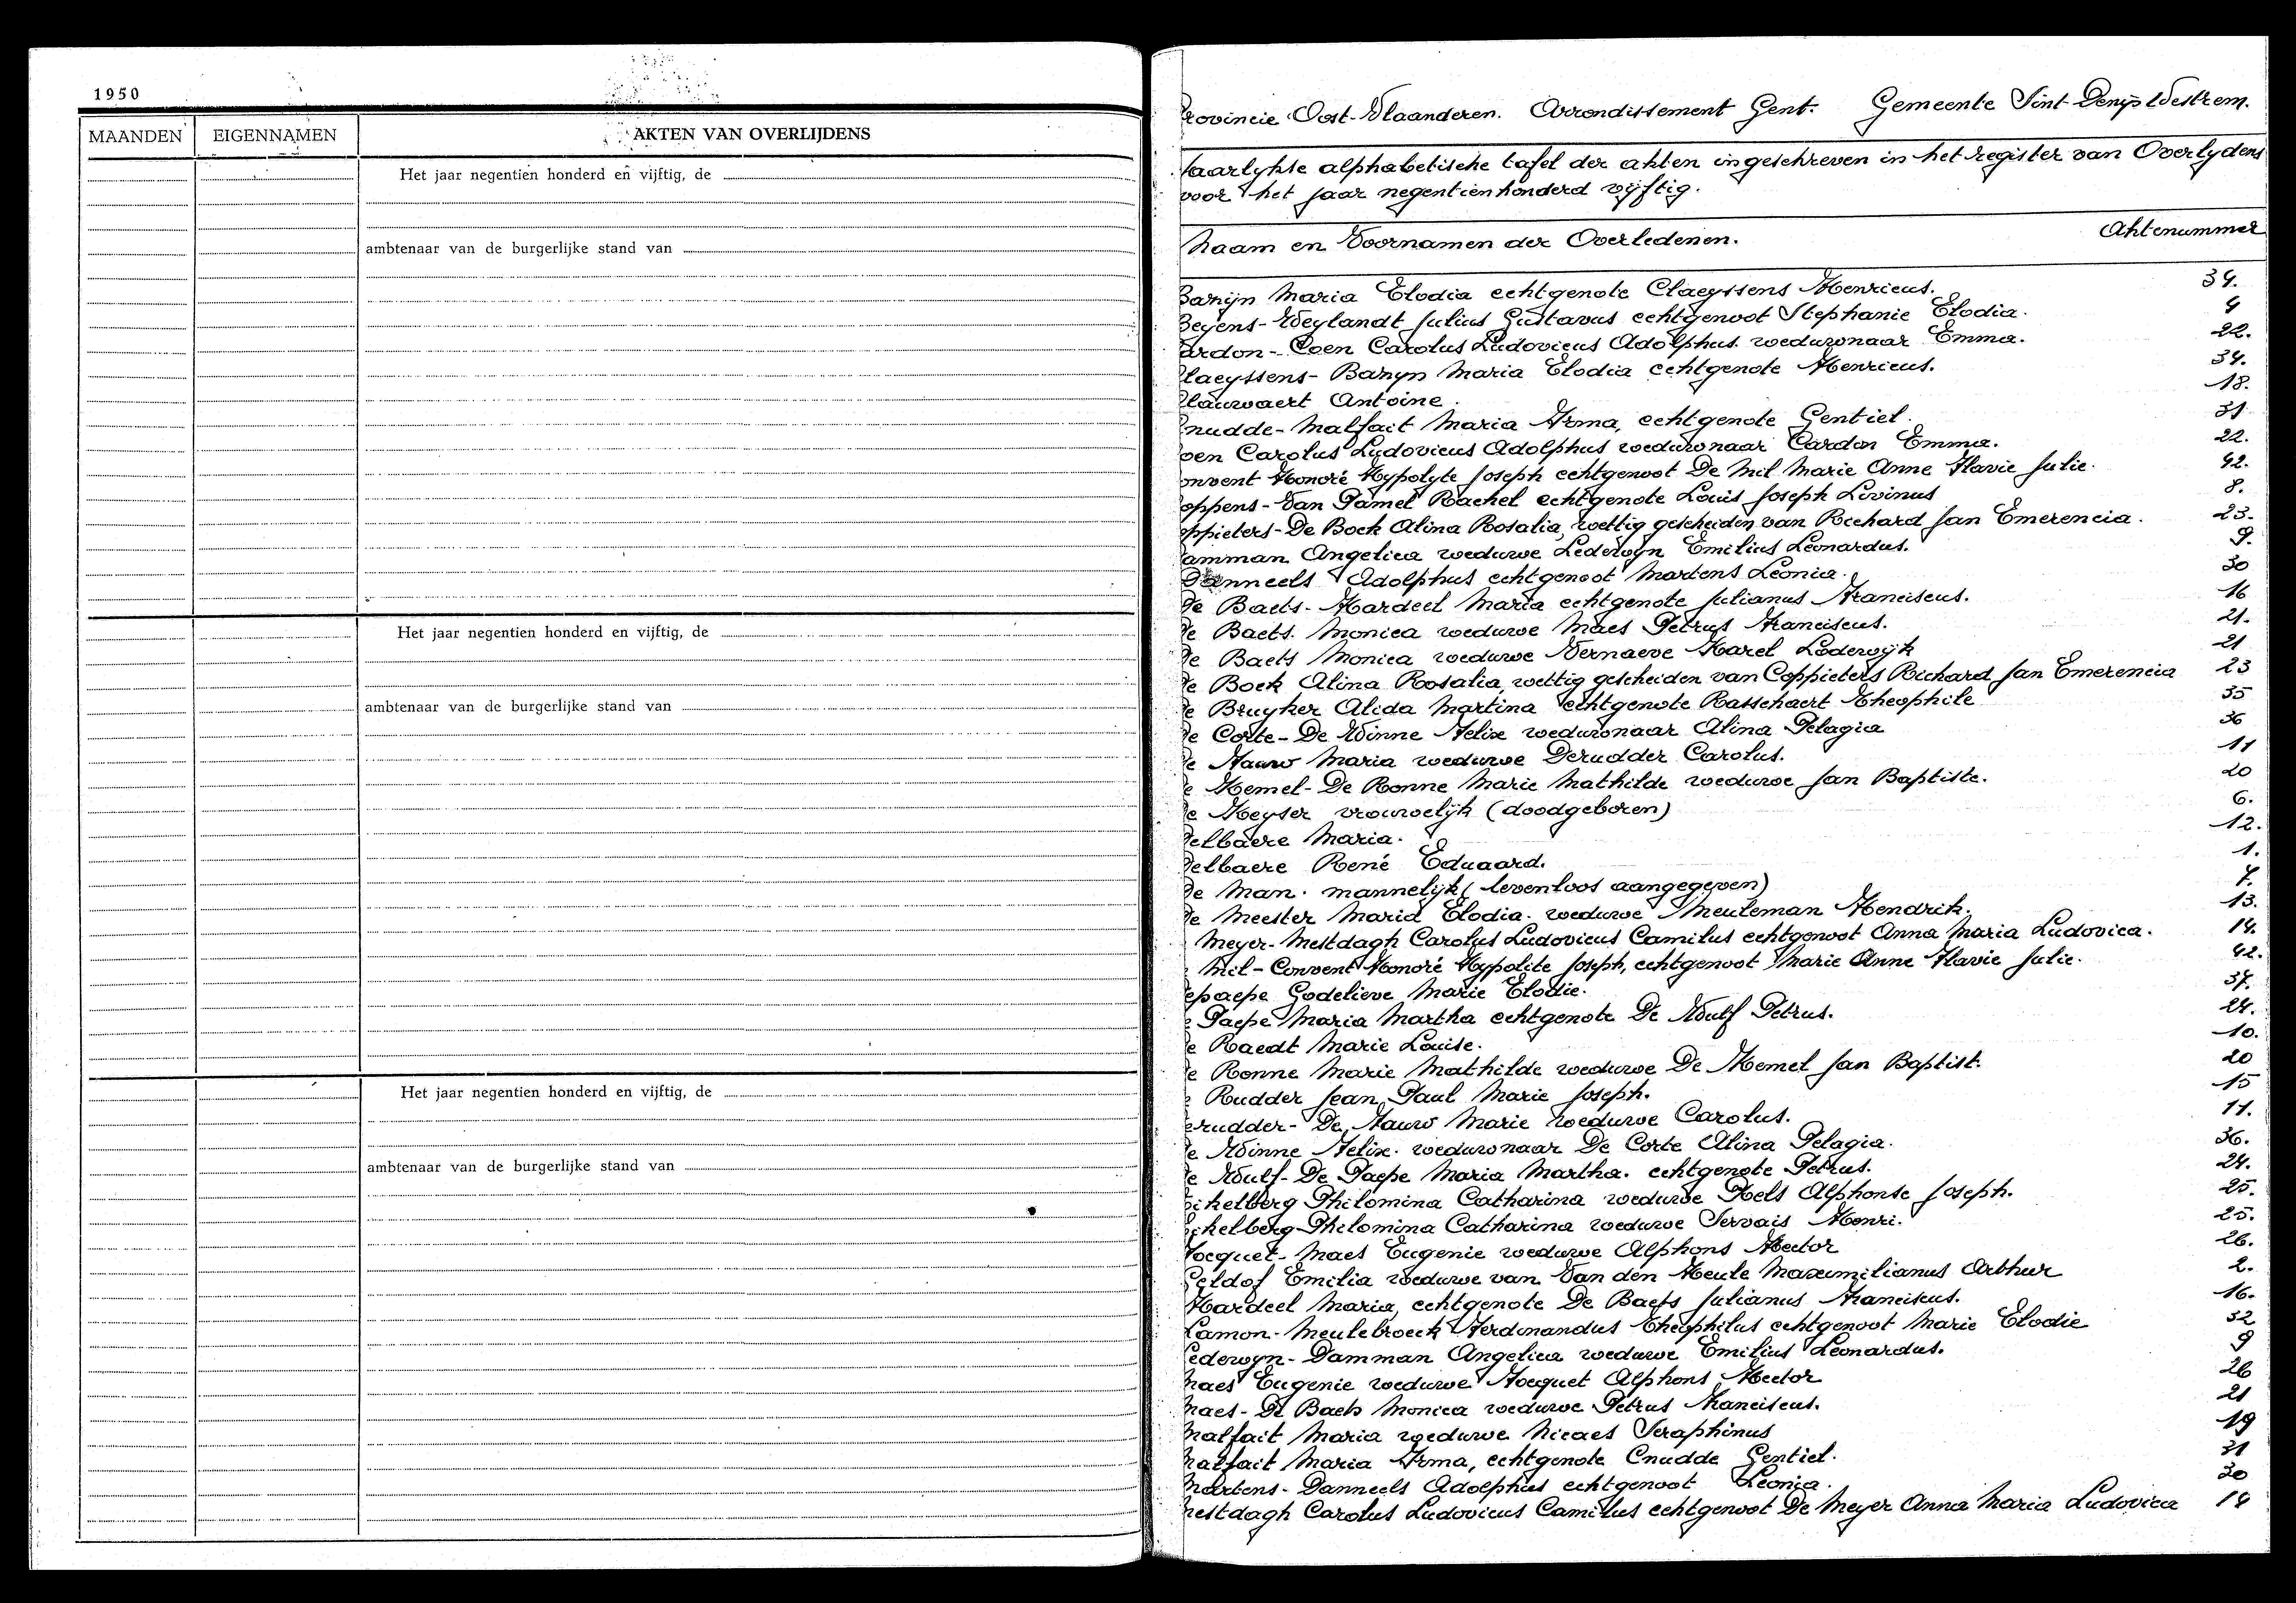 1950
MAANDEN EIGENNAMEN AKTEN VAN OVERLIJDENS
Het jaar negentien honderd en vijftig, de
ambtenaar van de burgerlijke stand van
Het jaar negentien honderd en vijftig, de
ambtenaar van de burgerlijke stand van
Het jaar negentien honderd en vijftig, de
ambtenaar van de burgerlijke stand van
Provincie Oost-Vlaanderen. Arrondissement Gent. Gemeente Sint-Denijs Westrem.
Jaarlykse alphabetische tafel der akten ingeschreven in het register van Overlydens
voor het jaar negentienhonderd vijftig.
Naam en Voornamen der Overledenen. Aktenummer
Banijn Maria Elodia echtgenote Claeyssens Henricus. 34.
Beyens-Weylandt Julius Gustavus echtgenoot Stephanie Elodia. 4
ardon-Coen Carolus Ludovicus Adolphus weduwnaar Emma. 22.
Claeyssens-Banyn Maria Elodia echtgenote Henricus. 34.
Clauwaert Antoine. 18.
Cnudde-Malfait Maria Irma, echtgenote Gentiel. 31
oen Carolus Ludovicus Adolphus weduwnaar Cardon Emma. 22.
onvent Honoré Hypolyte Joseph echtgenoot De Mil Marie Anne Flavie Julie. 42.
oppens-Van Damel Rachel echtgenote Louis Joseph Livinus 8.
oppieters-De Bock Alina Rosalia, wettig gescheiden van Richard Jan Emerencia. 23.
amman Angelica weduwe Ledewyn Emilius Leonardus. 9.
Danneels Adolphus echtgenoot Martens Leonia. 30
De Baets-Hardeel Maria echtgenote Julianus Franciscus. 16
De Baets. Monica weduwe Maes Petrus Franciscus. 21.
De Baets Monica weduwe Vernaeve Karel Lodewijk 21
De Bock Alina Rosalia, wettig gescheiden van Coppieters Richard Jan Emerencia 23
De Bruyker Alida Martina echtgenote Rasschaert Theophile 35
De Corte-De Winne Felix weduwnaar Alina Pelagia 36
De Fauw Maria weduwe Derudder Carolus. 11
De Hemel-De Ronne Marie Mathilde weduwe Jan Baptiste. 20
De Keyser vrouwelijk (doodgeboren) 6.
Delbaere Maria. 12.
Delbaere René Eduaard. 1.
De Man. mannelijk (levenloos aangegeven) 7.
De Meester Maria Elodia. weduwe Meuleman Hendrik. 13.
Meyer-Mestdagh Carolus Ludovicus Camilus echtgenoot Anna Maria Ludovica. 14.
Mil-Convent Honoré Hypolite Joseph, echtgenoot Marie Anne Flavie Julie. 42.
epaepe Godelieve Marie Elodie. 37.
e Paepe Maria Martha echtgenote De Wulf Petrus. 24.
e Raedt Marie Louise. 10.
e Ronne Marie Mathilde weduwe De Hemel Jan Baptist. 20
Rudder Jean Paul Marie Joseph. 15
erudder-De Fauw Marie weduwe Carolus. 11.
e Winne Felix. weduwnaar De Corte Alina Pelagia. 36.
e Wulf-De Paepe Maria Martha. echtgenote Petrus. 24.
ikelberg Philomina Catharina weduwe Roels Alphonse Joseph. 25.
ikelberg Philomina Catharina weduwe Servais Henri. 25.
Focquet-Maes Eugenie weduwe Alphons Hector 26.
Geldof Emilia weduwe van Van den Heule Maxumilianus Arthur 2.
Hardeel Maria, echtgenote De Baets Julianus Franciscus. 16.
Lamon-Meulebroeck Ferdinandus Theophilus echtgenoot Marie Elodie 32
Ledewyn-Damman Angelica weduwe Emilius Leonardus. 9
Maes Eugenie weduwe Focquet Alphons Hector 26
Maes-De Baets Monica weduwe Petrus Franciscus. 21
Malfait Maria weduwe Nicaes Seraphinus 19
Malfait Maria Irma, echtgenote Cnudde Gentiel. 31
Martens-Danneels Adolphus echtgenoot Leonia. 30
Mestdagh Carolus Ludovicus Camilus echtgenoot De Meyer Anna Maria Ludovica 14